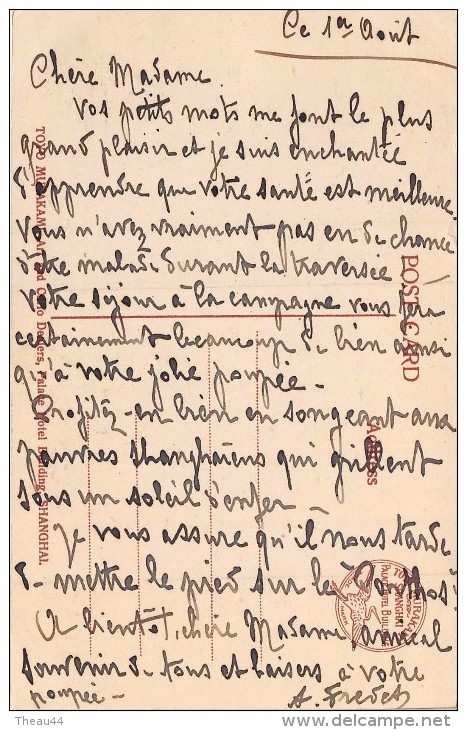 Ce 1er Août
Chère Madame
Vos petits mots me font le plus
grand plaisir et je suis enchantée
d'apprendre que votre santé est meilleure.
Vous n'avez vraiment pas eu de chance
d'être malade durant la traversée
votre séjour à la campagne vous fera
certainement beaucoup de bien ainsi
qu'à votre jolie poupée -
Profitez-en bien en songeant aux
pauvres Shanghaïens qui grillent
sous un soleil d'enfer -
Je vous assure qu'il nous tarde
de mettre le pied sur le
A bientôt, chère Madame, amical
souvenir de tous et baisers à votre
poupée -
A. Fredet
POST CARD
Address
TOYO MURAKAMI, Art and Curio Dealers, Palace Hotel Building, SHANGHAI.
TOYO MURAKAMI
SHANGHAI
PALACE HOTEL BUILDING
Theau44
delcampe.net